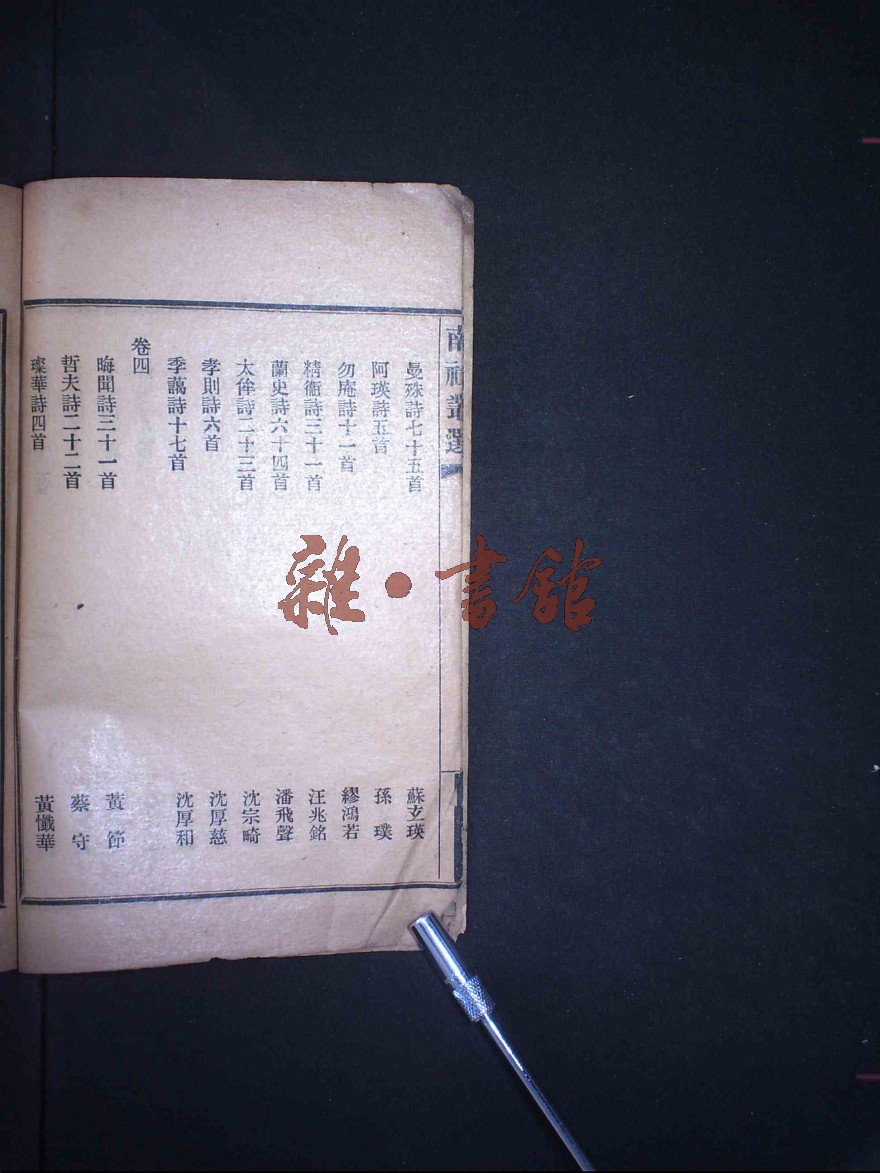 南社叢選
曼殊詩七十五首 蘇玄瑛
阿瑛詩五首 孫璞
勿庵詩十一首 繆鴻若
精衞詩三十一首 汪兆銘
蘭史詩六十四首 潘飛聲
太侔詩二十三首 沈宗畸
孝則詩六首 沈厚慈
季藹詩十七首 沈厚和
卷四
晦聞詩三十一首 黃節
哲夫詩二十二首 蔡守
璨華詩四首 黃懺華
雜·書館